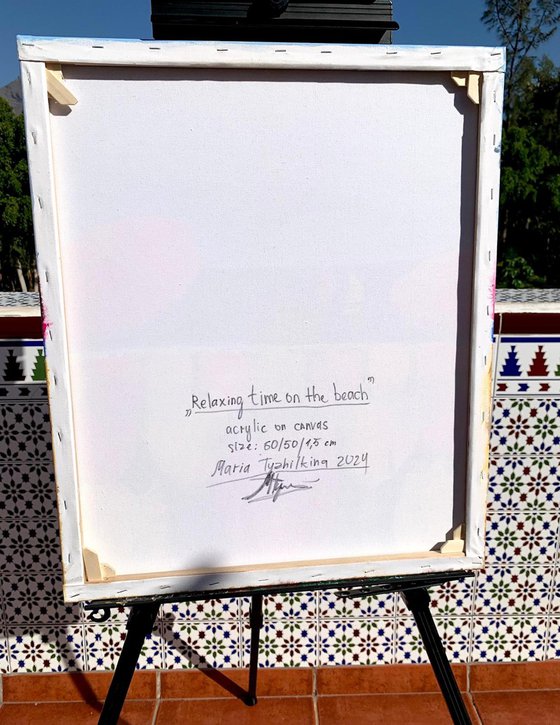 „Relaxing time on the beach”
acrylic on canvas
size: 60/50/1,5 cm
Maria Tyzhilkina 2024